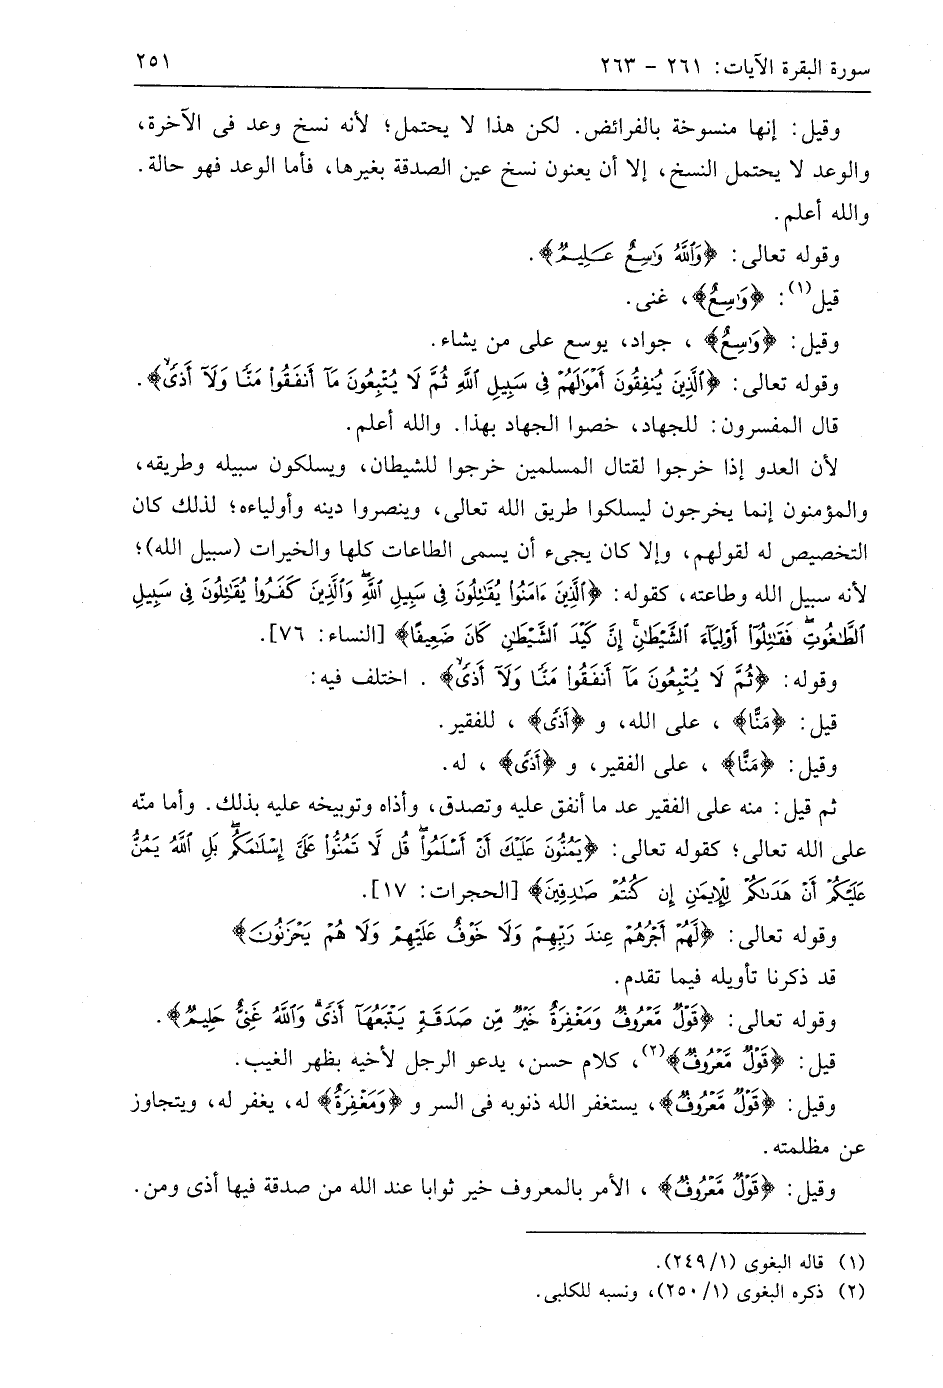 سورة البقرة الآيات: ٢٦١ - ٢٦٣ ٢٥١
وقيل: إنها منسوخة بالفرائض. لكن هذا لا يحتمل؛ لأنه نسخ وعد فى الآخرة،
والوعد لا يحتمل النسخ، إلا أن يعنون نسخ عين الصدقة بغيرها، فأما الوعد فهو حالة.
والله أعلم.
وقوله تعالى: ﴿وَٱللَّهُ وَٰسِعٌ عَلِيمٌ﴾.
قيل(١): ﴿وَٰسِعٌ﴾، غنى.
وقيل: ﴿وَٰسِعٌ﴾ ، جواد، يوسع على من يشاء.
وقوله تعالى: ﴿ٱلَّذِينَ يُنفِقُونَ أَمْوَٰلَهُمْ فِى سَبِيلِ ٱللَّهِ ثُمَّ لَا يُتْبِعُونَ مَآ أَنفَقُوا۟ مَنًّا وَلَآ أَذًىۙ﴾.
قال المفسرون: للجهاد، خصوا الجهاد بهذا. والله أعلم.
لأن العدو إذا خرجوا لقتال المسلمين خرجوا للشيطان، ويسلكون سبيله وطريقه،
والمؤمنون إنما يخرجون ليسلكوا طريق الله تعالى، وينصروا دينه وأولياءه؛ لذلك كان
التخصيص له لقولهم، وإلا كان يجىء أن يسمى الطاعات كلها والخيرات (سبيل الله)؛
لأنه سبيل الله وطاعته، كقوله: ﴿ٱلَّذِينَ ءَامَنُوا۟ يُقَٰتِلُونَ فِى سَبِيلِ ٱللَّهِۖ وَٱلَّذِينَ كَفَرُوا۟ يُقَٰتِلُونَ فِى سَبِيلِ
ٱلطَّٰغُوتِ فَقَٰتِلُوٓا۟ أَوْلِيَآءَ ٱلشَّيْطَٰنِۖ إِنَّ كَيْدَ ٱلشَّيْطَٰنِ كَانَ ضَعِيفًا﴾ [النساء: ٧٦].
وقوله: ﴿ثُمَّ لَا يُتْبِعُونَ مَآ أَنفَقُوا۟ مَنًّا وَلَآ أَذًىۙ﴾ . اختلف فيه:
قيل: ﴿مَنًّا﴾ ، على الله، و ﴿أَذًى﴾ ، للفقير.
وقيل: ﴿مَنًّا﴾ ، على الفقير، و ﴿أَذًى﴾ ، له.
ثم قيل: منه على الفقير عد ما أنفق عليه وتصدق، وأذاه وتوبيخه عليه بذلك. وأما منّه
على الله تعالى؛ كقوله تعالى: ﴿يَمُنُّونَ عَلَيْكَ أَنْ أَسْلَمُوا۟ۖ قُل لَّا تَمُنُّوا۟ عَلَىَّ إِسْلَٰمَكُمۖ بَلِ ٱللَّهُ يَمُنُّ
عَلَيْكُمْ أَنْ هَدَىٰكُمْ لِلْإِيمَٰنِ إِن كُنتُمْ صَٰدِقِينَ﴾ [الحجرات: ١٧].
وقوله تعالى: ﴿لَّهُمْ أَجْرُهُمْ عِندَ رَبِّهِمْ وَلَا خَوْفٌ عَلَيْهِمْ وَلَا هُمْ يَحْزَنُونَ﴾
قد ذكرنا تأويله فيما تقدم.
وقوله تعالى: ﴿قَوْلٌ مَّعْرُوفٌ وَمَغْفِرَةٌ خَيْرٌ مِّن صَدَقَةٍ يَتْبَعُهَآ أَذًىۗ وَٱللَّهُ غَنِىٌّ حَلِيمٌ﴾.
قيل: ﴿قَوْلٌ مَّعْرُوفٌ﴾(٢)، كلام حسن، يدعو الرجل لأخيه بظهر الغيب.
وقيل: ﴿قَوْلٌ مَّعْرُوفٌ﴾، يستغفر الله ذنوبه فى السر و ﴿وَمَغْفِرَةٌ﴾ له، يغفر له، ويتجاوز
عن مظلمته.
وقيل: ﴿قَوْلٌ مَّعْرُوفٌ﴾ ، الأمر بالمعروف خير ثوابا عند الله من صدقة فيها أذى ومن.
(١) قاله البغوى (٢٤٩/١).
(٢) ذكره البغوى (٢٥٠/١)، ونسبه للكلبى.